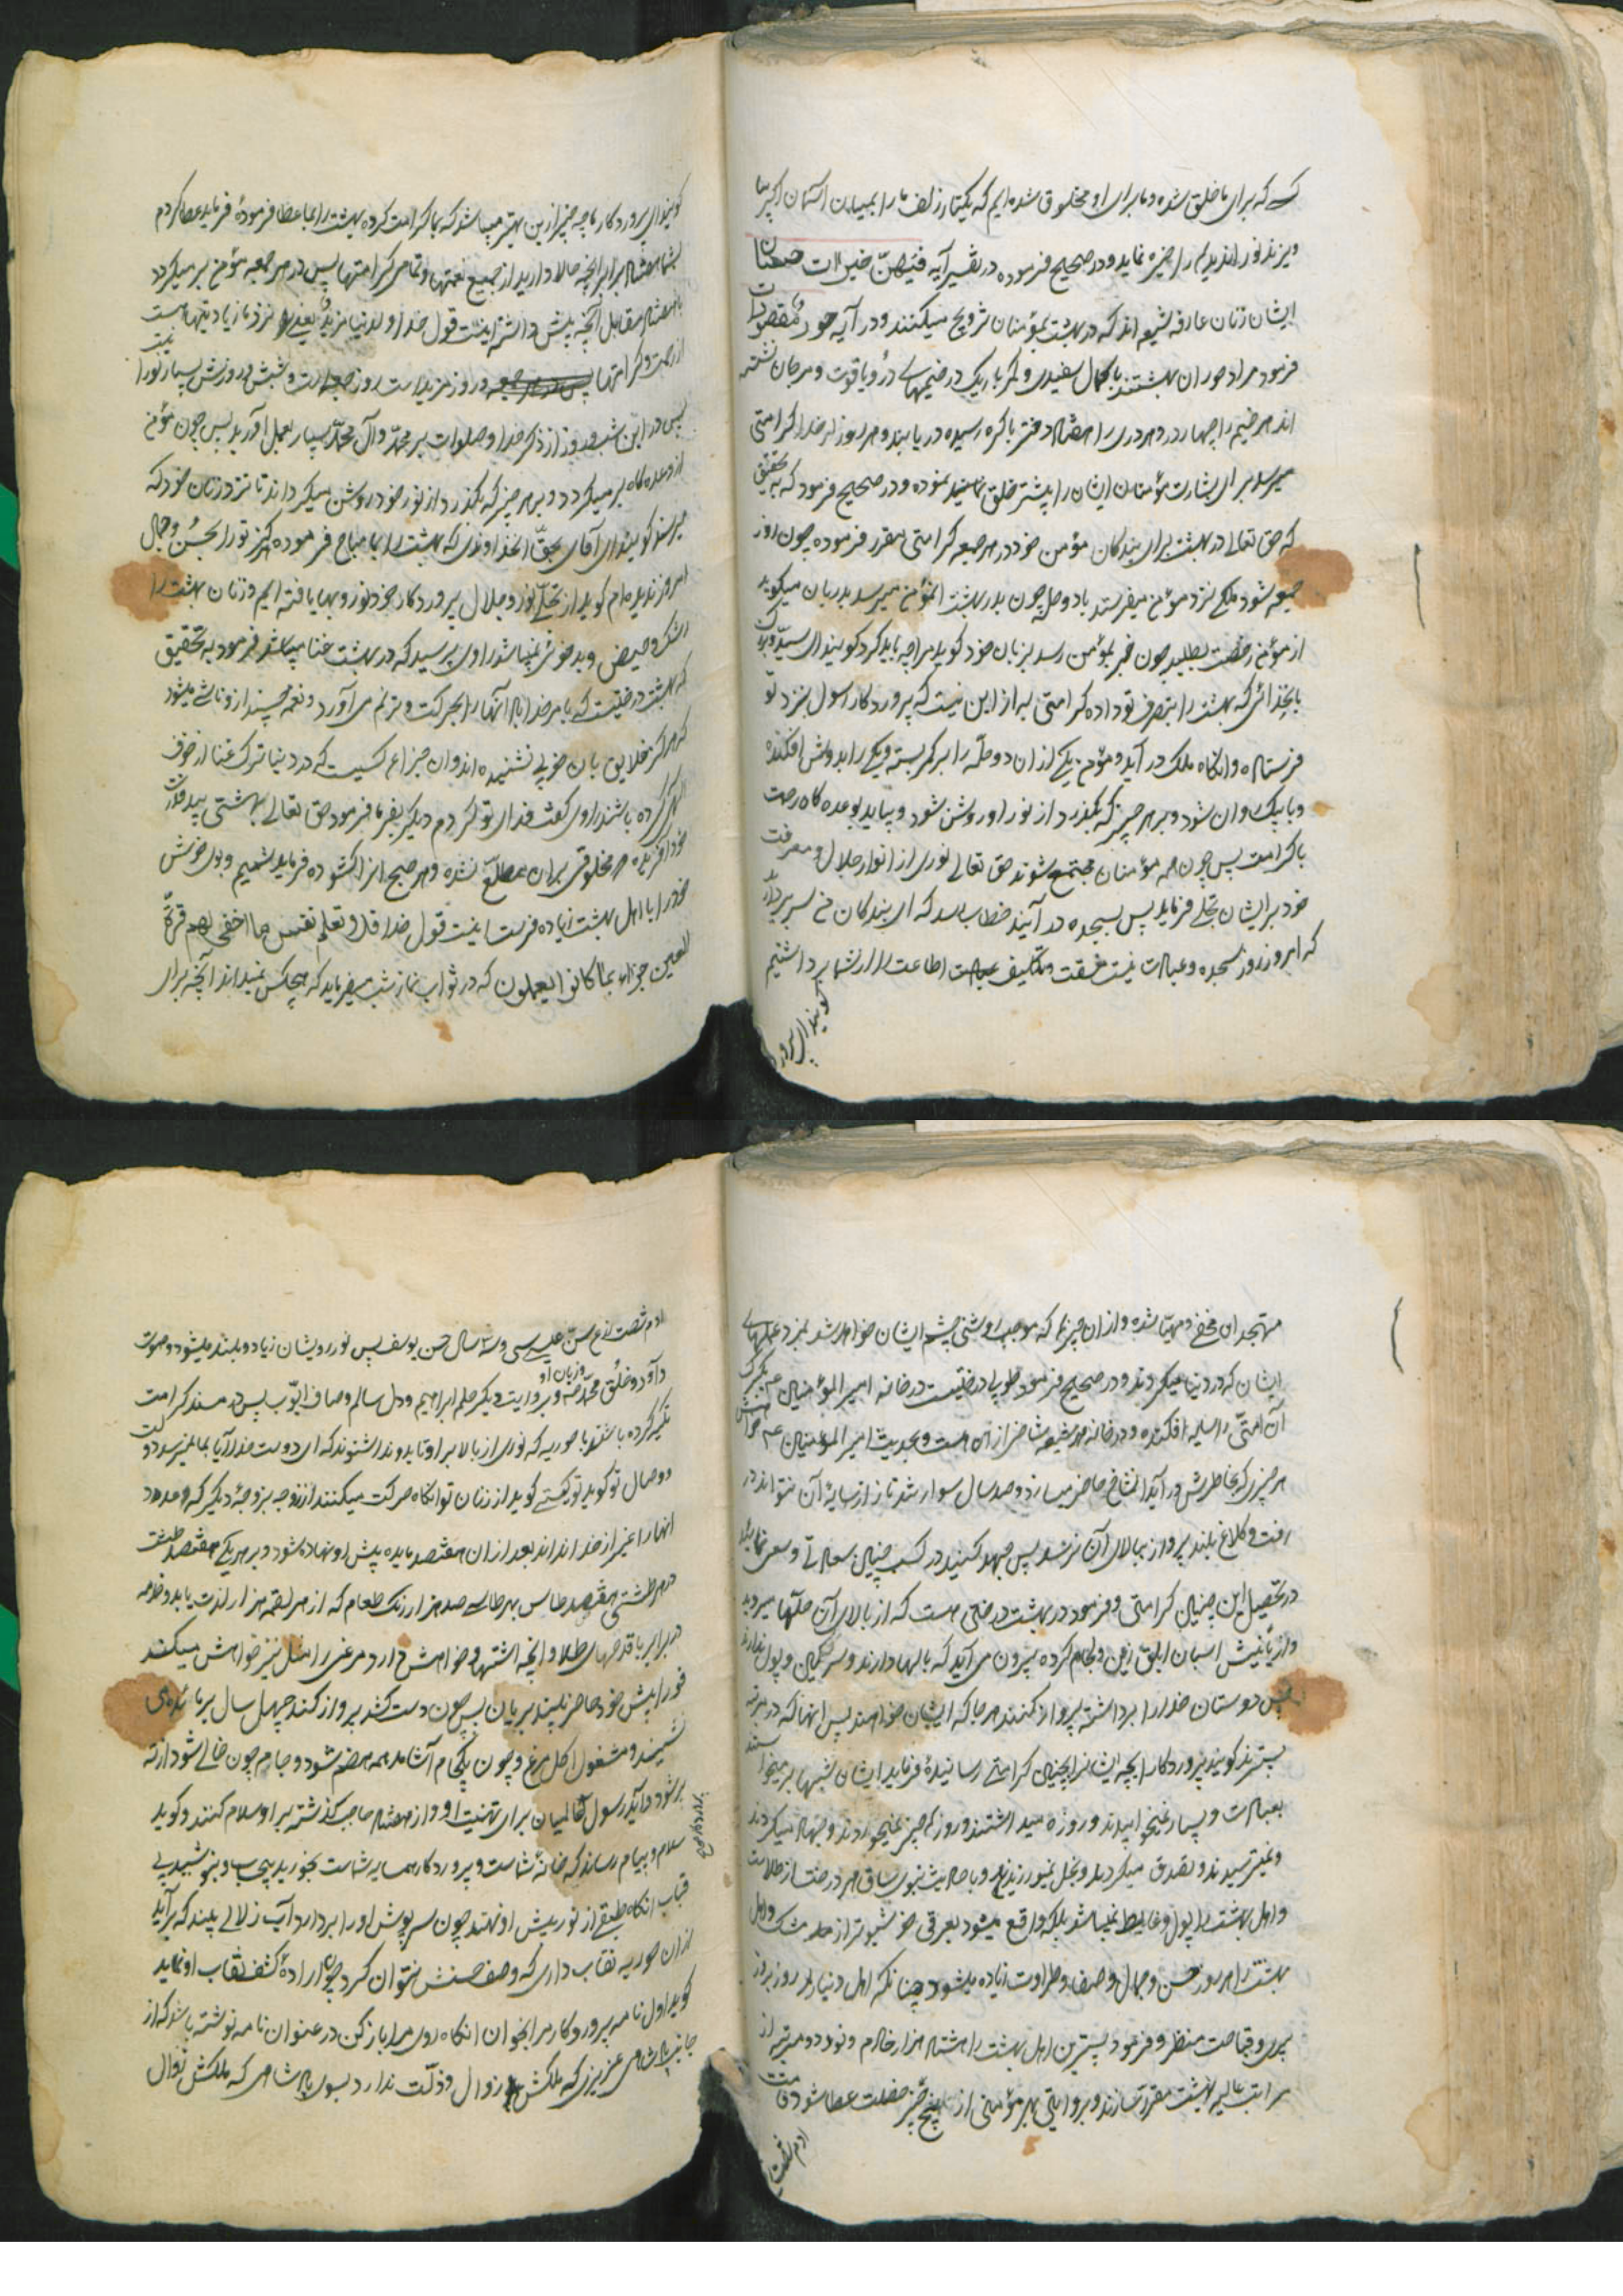 کسے که برای ما خلق شده و ما برای او مخلوق شده‌ایم که یکتار زلف ما را بمیان آسمان اگر بیا
ویزند نور اندیدۀ را خیره نماید و در صحیح فرموده در تفسیر آیه فیهنّ خیرات حسان
ایشان زنان عارفه شیعه اند که در بهشت بمؤمنان تزویج میکنند و در آیه حور مقصورات
فرمود مراد حوران بهشتند با کمال سفیدی و کمر باریک در خیمهای درّ و یاقوت و مرجان نشسته
اند هر خیمه را چهار در و هر دری را هفتاد دختر باکره رسیده دربابند و هر روز از خدا کرامتی
میرسد برای بشارت مؤمنان ایشان را پیشتر خلق نموده و در صحیح فرمود که به تحقیق
که حق تعالی در بهشت برای بندکان مؤمن خود در هر جمعه کرامتی مقرر فرموده چون روز
جمعه شود ملکی نزد مؤمن میفرستد با دو حله چون بدر بهشت آنمؤمن میرسد بدربان میکوید
از مؤمن رخصت بطلبید چون خبر بمؤمن رسد بزنان خود کوید مرا چه باید کرد کویند ای سیّد
بانخدائی که بهشت را بتصرف تو داده کرامتی به از این نیست که پروردکار رسول بنزد تو
فرستاده وانکاه ملک در آید و مؤمن یکی از ان دو حلّه را بر کمر بسته و یکی را بدوش افکنده
و با پیک روان شود و بر هر چیز که بکذرد از نور او روشن شود و بیاید بوعده کاه رحمت
با کرامت پس چون همه مؤمنان مجتمع شوند حق تعالی نوری از انوار جلال و معرفت
خود بر ایشان تجلے فرماید پس بسجده در آیند خطاب رسد که ای بندکان من سر بردارید
که امروز روز سجده و عبادت نیست مشقت و تکلیف عبادت اطاعت را از شما برداشتیم
کویند ای پرورد
کویند ای پروردکار ما چه چیز ازین بهتر میباشد که بما کرامت کردۀ بهشت را بما عطا فرمودۀ فرماید عطا کردم
بشما هفتاد برابر آنچه حالا دارید از جمیع نعمتها و تمامی کرامتها پس در هر جمعه مؤمن بر میکردد
با هفتاد مقابل آنچه پیش داشته اینست قول خدا و لدینا مزید یعنی نزد ما زیادتیها هست
از رحمت و کرامتها و روز مزید است روز جمعه است و شبش و روزش بسیار نورا نیست
پس در این شب و روز از ذکر خدا و صلوات بر محمّد و آل محمّد بسیار بعمل آورید پس چون مؤمن
از وعده کاه بر میکردد و بر هر چیز که بکذرد از نور خود روشن میکرداند تا نزد زنان خود که
میرسد کویند ای آقای بحقّ انخداوندی که بهشت را بما مباح فرموده هرکز تو را بحُسن و جمال
امروز ندیده‌ام کوید از تجلّے نور و جلال پروردکار خود نور و بها یافته ایم و زنان بهشت را
رشک و حیض و بد خوئی نمیباشد راوی پرسید که در بهشت غنا میباشد فرمود به تحقیق
که بهشت درختیست که بامر خدا بادها آنها را بحرکت و ترنم می‌آورد و نغمه چند از و ناشے میشود
که هرکز خلایق بان خوبی نشنیده اند و ان جزای کسیست که در دنیا ترک غنا از خوف
الهی کرده باشد راوی کفت فدای تو کردم دیکر بفرما فرمود حق تعالی بهشتی بید قدرت
خود آفریده هر مخلوقی بران مطلع نشده و هر صبح انرا کشوده فرماید نسیم و بوی خوش
خود را با اهل بهشت زیاده فرست اینست قول خدا فلا تعلم نفس ما اخفی لهم من قرة
اعین جزاء بما کانوا یعملون که در ثواب نماز شب میفرماید که هیچکس نمیداند آنچه برای
متهجدان مخفی و مهیّا شده و از ان چیزها که موجب روشنی چشم ایشان خواهد شد بمزد عملهای
ایشان که در دنیا میکردند و در صحیح فرمود طوبی درختیست در خانه امیر المؤمنین ع که برک
آن امتّی را سایه افکنده و در خانه هر شیعه شاخی از ان است و بحدیث امیر المؤمنین ع خواهش
هر چیزی که بخاطرش در آید آنشاخ حاضر میسازد و صد سال سوار تند تاز از سایۀ آن نتواند در
رفت و کلاغ بلند پرواز ببالای آن نرسد پس جهد کنید در کسب چنین سعادتے و سعی نمائید
در تحصیل این چنین کرامتی و فرمود در بهشت درختی هست که از بالای آن حلّها میروید
و از پائینش اسبان ابلق زین و لجام کرده بیرون می آید که بالها دارند و سرکین و بول ندارند
پس دوستان خدا را برداشته پرواز کنند هر جا که ایشان خواهند پس انها که در مرتبه
پستترند کویند پروردکارا بچه ایشان را چنین کرامتے رسانیدۀ فرماید ایشان شبها بر میخواستند
بعبادت و بسیار نمیخوابیدند و روزه میداشتند و روز چیز نمیخوردند و جهاد میکردند
و نمیترسیدند و تصدق میکردند و بخل نمیورزیدند و با حدیث نبوی ساق هر درخت از طلاست
و اهل بهشت را بول و غایط نمیباشد بلکه دفع میشود بعرقی خوشبوتر از مشک و اهل
بهشت را هر روز حسن و جمال و صفا و طراوت زیاده میشود چنانکه اهل دنیا را روز بروز
پیری و قباحت منظر و فرمود پسترین اهل بهشت را هشتاد هزار خادم و نود دو مرتبه از
مراتب عالیه بهشت مقرر سازند و بروایتی بهر مؤمنی از پنج چیز خصلت عطا شود قامت
ادم شصت
ادم شصت ذرع سن عیسی سی و سه سال حسن یوسف پس نور رویشان زیاد و بلند میشود و صوت
داود و خلق محمّد ص و زبان او و بروایت دیکر حلم ابراهیم و دل سالم و صاف ایّوب پس در مسند کرامت
تکیه کرده باشند با حوریه که نوری از بالا بر او تابد و ندا شنوند که ای دوست خدا آیا بما نمیرسد دولت
وصال تو کوید تو کیستے کوید از زنان تو انکاه حرکت میکنند از زوجه بزوجۀ دیکر که عدد
انها را غیر از خدا نداند بعد از ان هفتصد مایده پیش او نهاده شود و بر هر یکی هفتصد طشت
در هر طشتی هفتصد طاس بهر طاسے صد هزار رنک طعام که از هر لقمه هزار لذت یابد و خادمه
در برابر با قدحهای طلا و آنچه اشتها و خواهش دارد مرغی را مثل نیز خواهش میکند
فورا پیش خود حاضر بیند بریان پس چون دست کشد پرواز کند چهل سال بر مائده‌ی
نشیند و مشغول اکل مرغ و چون یکجام آشامد همه هضم شود و جام چون خالے شود از ته
پر شود و آید رسول عالمیان برای تهنیت او و از هفتاد حاجب کذشته بر او سلام کنند و کوید
سلام و پیام رساند که خانۀ شماست و پروردکار همسایه شماست بخورید بیحساب و بنوشید بی
قباب انکاه طبقے از نور پیش او نهند چون سرپوش او را بردارد آب زلالے بیند که بر آید
از ان حوریه نقاب داری که وصف حسنش نتوان کرد چون ارادۀ کشف نقاب او نماید
کوید اول نامه پروردکار مرا بخوان انکاه روی مرا باز کن در عنوان نامه نوشته باشد که از
جانب پادشاهی عزیزی که ملکش زوال و ذلّت ندارد بسوی پادشاهی که ملکش زوال